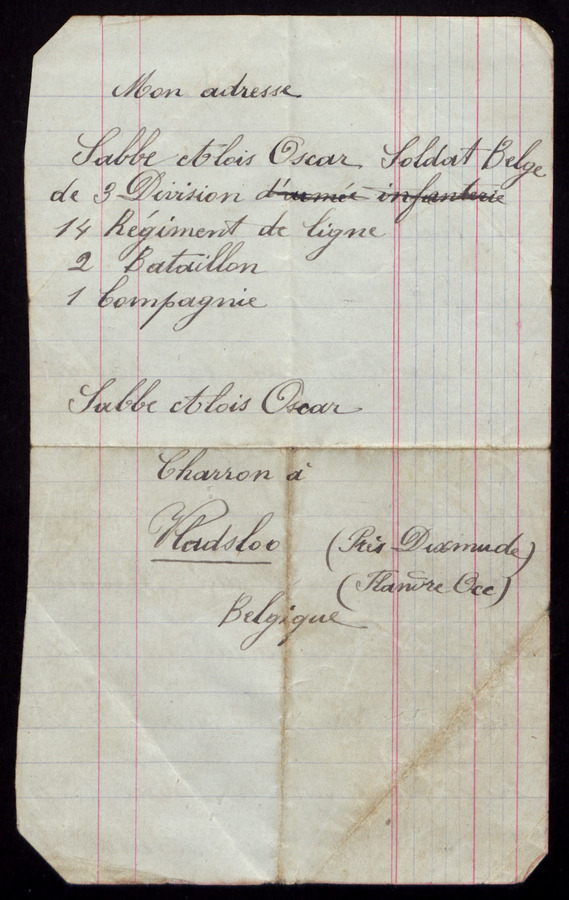 Mon adresse
Sabbe Alois Oscar Soldat Belge
de 3 Division d'armée infanterie
14 Régiment de ligne
2 Bataillon
1 Compagnie
Sabbe Alois Oscar
Charron à
Vladsloo (Près Dixmude)
(Flandre Occ)
Belgique